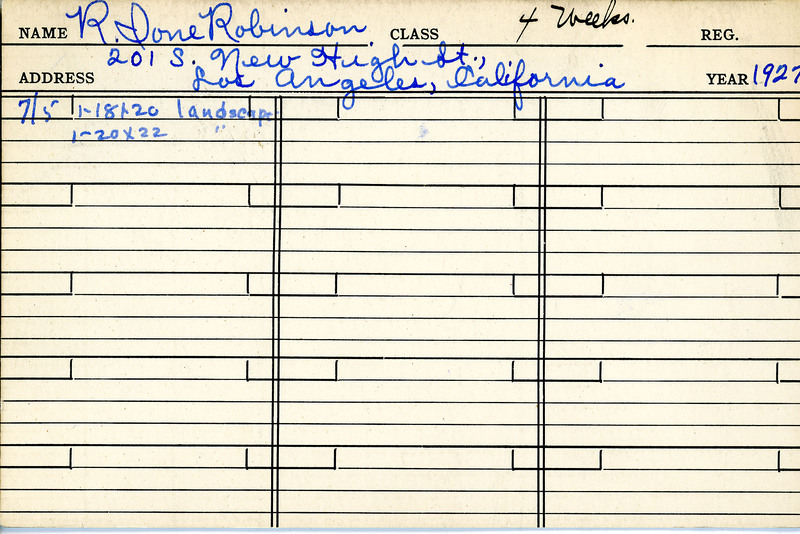 NAME R. Ione Robinson CLASS 4 Weeks. REG.
201 S. New High St.,
ADDRESS Los Angeles, California YEAR 1927
7/5 1-18x20 landscape
1-20x22 "